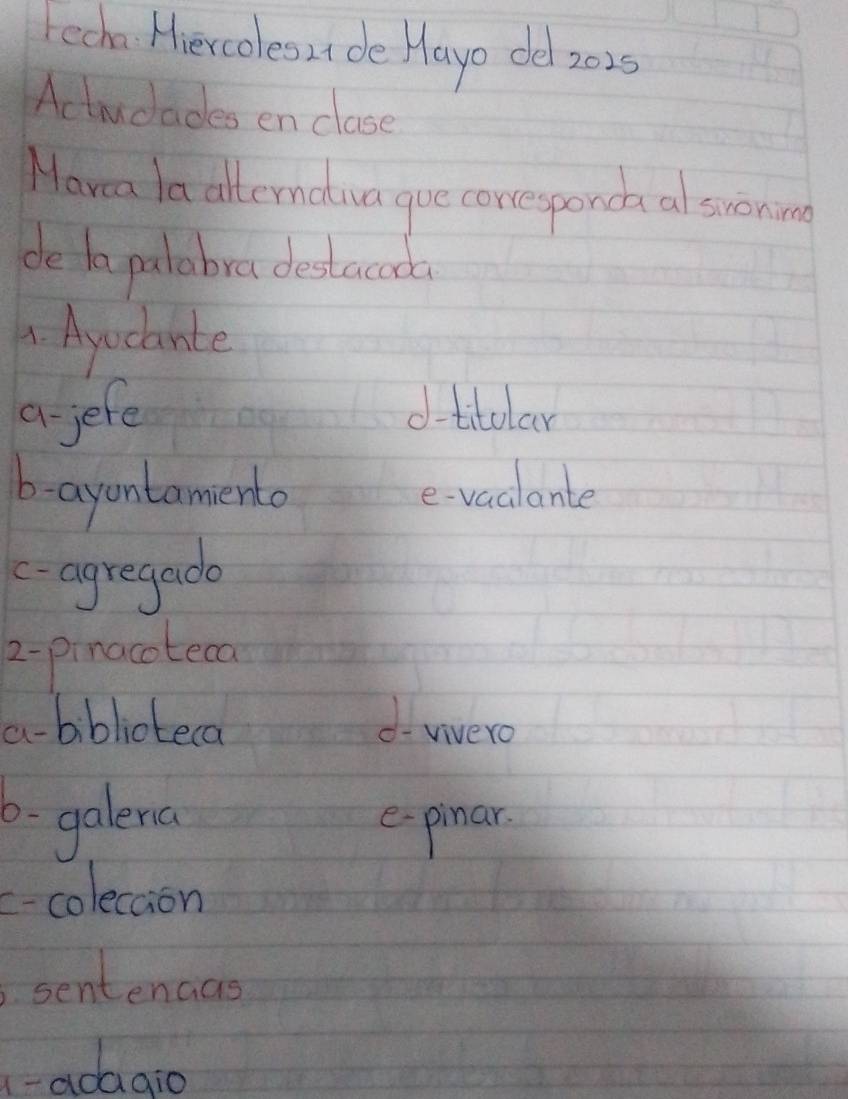 Fecha: Miércoles 21 de Mayo del 2025
Actividades en clase
Marca la alternativa que corresponda al sinónimo
de la palabra destacada.
1. Ayudante
a-jefe d-titular
b-ayuntamiento e-vacilante
c-agregado
2-pinacoteca
a-biblioteca d-vivero
b-galeria e-pinar.
c-colección
sentencias
a-adagio